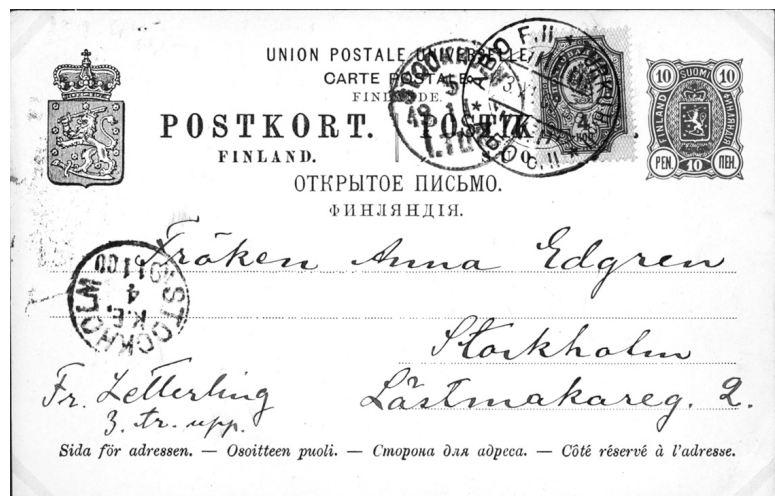 UNION POSTALE UNIVERSELLE
CARTE POSTALE
FINLANDE.
POSTKORT. POSTIKORTTI.
FINLAND. SUOMI
ОТКРЫТОЕ ПИСЬМО.
ФИНЛЯНДІЯ.
10 SUOMI 10
FINLAND ФИНЛЯНДІЯ
PEN. 10 ПЕН.
STOCKHOLM
K.E.
4
Fröken Anna Edgren
Stockholm
Fr. Zetterling Lästmakareg. 2.
3. tr. upp.
Sida för adressen. — Osoitteen puoli. — Сторона для адреса. — Côté réservé à l'adresse.